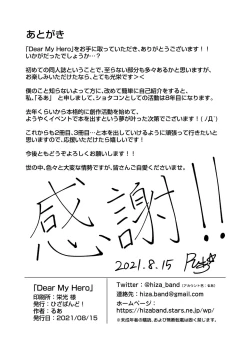 あとがき
『Dear My Hero』をお手に取っていただき、ありがとうございます！！
いかがだったでしょうか…？
初めての同人誌ということで、至らない部分も多々あるかと思いますが、
お楽しみいただけたなら、とても光栄です＞＜
僕のこと知らないよって方に、改めて簡単に自己紹介をすると、
私、「るあ」 と申しまして、ショタコンとしての活動は8年目になります。
去年くらいから本格的に創作活動を始めて、
ようやくイベントで本を出すという夢が叶った次第でございます！（ノД｀）
これからも2冊目、3冊目…と本を出していけるように頑張って行きたいと
思いますので、応援いただけたら嬉しいです！
今後ともどうぞよろしくお願いします！！
世の中、色々と大変な情勢ですが、皆さんご自愛くださいませ。
感謝!!
2021.8.15
『Dear My Hero』
印刷所：栄光 様
発行：ひざばんど！
作者：るあ
発行日：2021/08/15
Twitter：@hiza_band（アカウント名：るあ）
連絡先：hiza.band@gmail.com
ホームページ：
https://hizaband.stars.ne.jp/wp/
※未成年者の購読、および無断転載は固く禁じます。